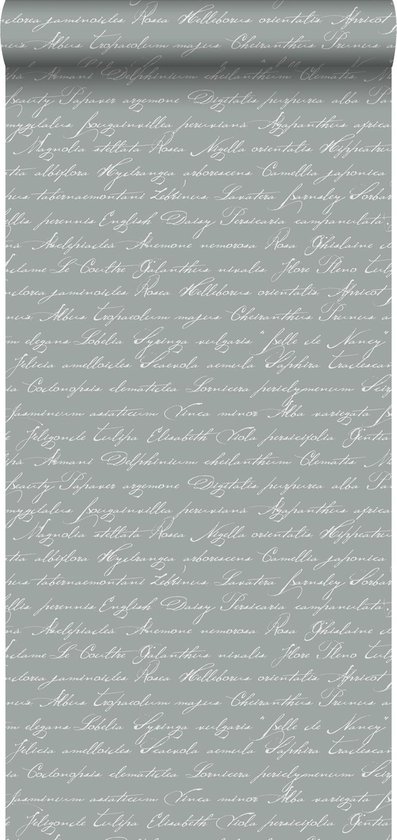 dorea jasminoides Rosea Helleborus orientalis Apricot
nus Albus tropaeolum majus Cheiranthus Prunus a
Armani Delphinium cheilanthum Clematis
beauty Papaver argemone Digitalis purpurea alba Pa
amygdalus Bougainvillea peruviana Agapanthus africa
Magnolia stellata Rosea Nigella orientalis Hippeatru
ta albiflora Hydrangea arborescens Camellia japonica
nus tabernaemontani Zebrinus Lavatera Barnsley Sorbar
ellis perennis English Daisy Persicaria campanulata
Asclepiades Anemone nemorosa Rosa Ghislaine d
dame Le Coultre Galanthus nivalis Flore Pleno Tul
ndorea jaminoides Rosea Helleborus orientalis Apricot
nus Albus tropaeolum majus Cheiranthus Prunus a
m elegans Lobelia Syringa vulgaris "Belle de Nancy"
Felicia amelloides Scaevola aemula Saphira tradescan
ia Codonopsis clematidea Lornicera periclymenum Scir
Jasminum asiaticum Vinca minor Alba variegata
e Feligonde tulipa Elisabeth Viola persicifolia Gentia
Armani Delphinium cheilanthum Clematis
beauty Papaver argemone Digitalis purpurea alba Pa
amygdalus Bougainvillea peruviana Agapanthus africa
Magnolia stellata Rosea Nigella orientalis Hippeatru
ta albiflora Hydrangea arborescens Camellia japonica
nus tabernaemontani Zebrinus Lavatera Barnsley Sorbar
ellis perennis English Daisy Persicaria campanulata
Asclepiades Anemone nemorosa Rosa Ghislaine de
dame Le Coultre Galanthus nivalis Flore Pleno Tul
ndorea jaminoides Rosea Helleborus orientalis Apricot
nus Albus tropaeolum majus Cheiranthus Prunus a
m elegans Lobelia Syringa vulgaris "Belle de Nancy"
Felicia amelloides Scaevola aemula Saphira tradescan
ia Codonopsis clematidea Lornicera periclymenum Scir
Jasminum asiaticum Vinca minor Alba variegata
e Feligonde tulipa Elisabeth Viola persicifolia Gentia